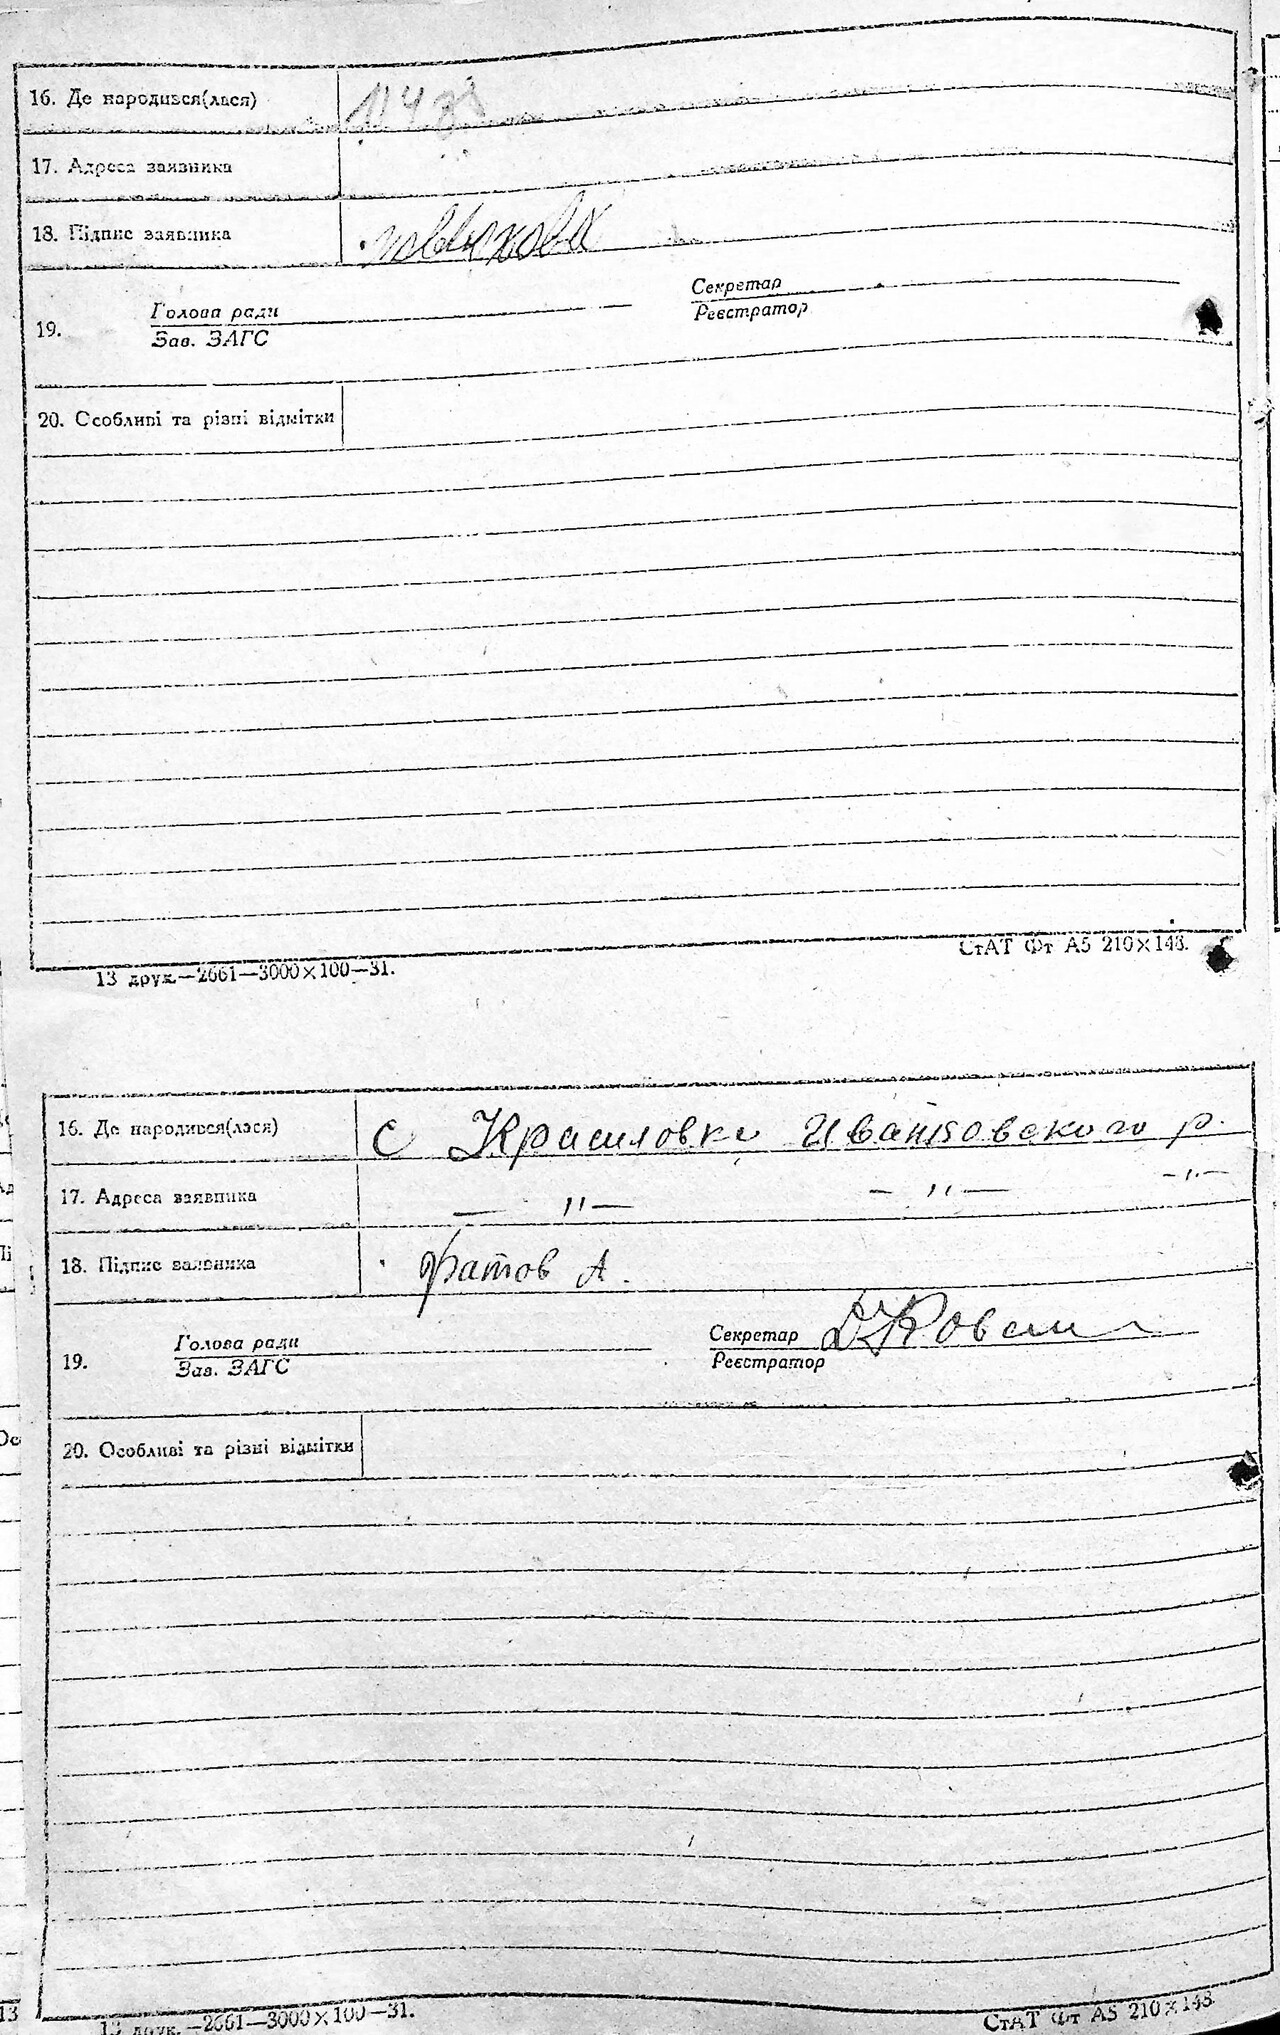 16. Де народився(лася)
17. Адреса заявника
18. Підпис заявника
Голова ради Секретар
19. Зав. ЗАГС Реєстратор
20. Особливі та різні відмітки
13 друк.—2661—3000×100—31. СтАТ Фт А5 210×148.
16. Де народився(лася) с Красиловке р.
17. Адреса заявника — " — — " — — " —
18. Підпис заявника Фатов А.
Голова ради Секретар
19. Зав. ЗАГС Реєстратор
20. Особливі та різні відмітки
13 друк.—2661—3000×100—31. СтАТ Фт А5 210×148.